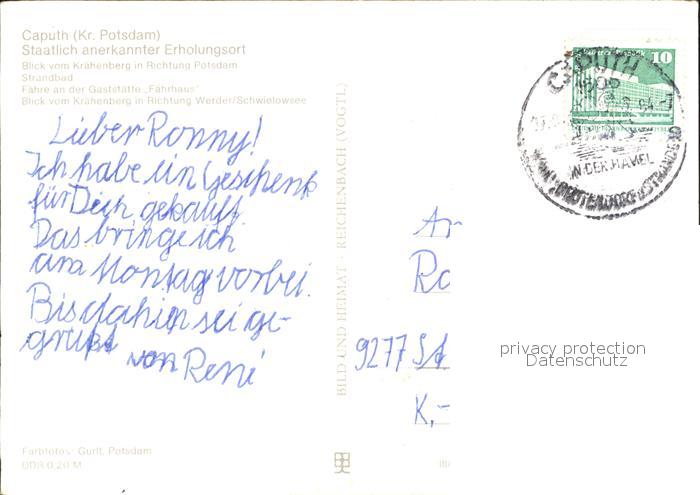 Caputh (Kr. Potsdam)
Staatlich anerkannter Erholungsort
Blick vom Krähenberg in Richtung Potsdam
Strandbad
Fähre an der Gaststätte „Fährhaus“
Blick vom Krähenberg in Richtung Werder/Schwielowsee
Lieber Ronny!
Ich habe ein Geschenk
für Dich gekauft.
Das bringe ich
am Montag vorbei.
Bis dahin sei ge-
grüßt
von René
Farbfotos: Gurlt, Potsdam
DDR 0,20 M
BILD UND HEIMAT · REICHENBACH (VOGTL)
10
CAPUTH
AN DER HAVEL
An
Ro
9277 St
K,-
privacy protection
Datenschutz